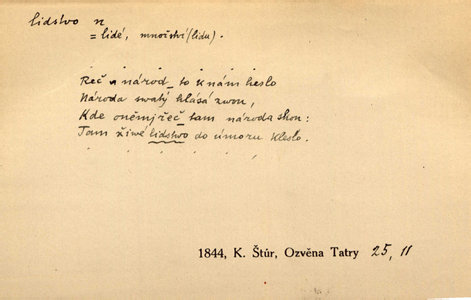 lidstvo n
= lidé, množství (lidu).
Řeč a národ_ to k nám heslo
Národa swatý hlásá zwon,
Kde oněmj řeč_ tam národa skon:
Tam žiwé lidstwo do úmoru kleslo.
1844, K. Štúr, Ozvěna Tatry 25, 11